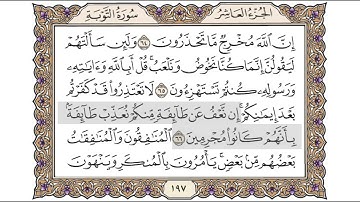 الجزء العاشر
سورة التوبة
إِنَّ ٱللَّهَ مُخْرِجٌ مَّا تَحْذَرُونَ ٦٤ وَلَئِن سَأَلْتَهُمْ
لَيَقُولُنَّ إِنَّمَا كُنَّا نَخُوضُ وَنَلْعَبُ ۚ قُلْ أَبِٱللَّهِ وَءَايَٰتِهِۦ
وَرَسُولِهِۦ كُنتُمْ تَسْتَهْزِءُونَ ٦٥ لَا تَعْتَذِرُوا۟ قَدْ كَفَرْتُم
بَعْدَ إِيمَٰنِكُمْ ۚ إِن نَّعْفُ عَن طَآئِفَةٍ مِّنكُمْ نُعَذِّبْ طَآئِفَةًۢ
بِأَنَّهُمْ كَانُوا۟ مُجْرِمِينَ ٦٦ ٱلْمُنَٰفِقُونَ وَٱلْمُنَٰفِقَٰتُ
بَعْضُهُم مِّنۢ بَعْضٍ ۚ يَأْمُرُونَ بِٱلْمُنكَرِ وَيَنْهَوْنَ
١٩٧